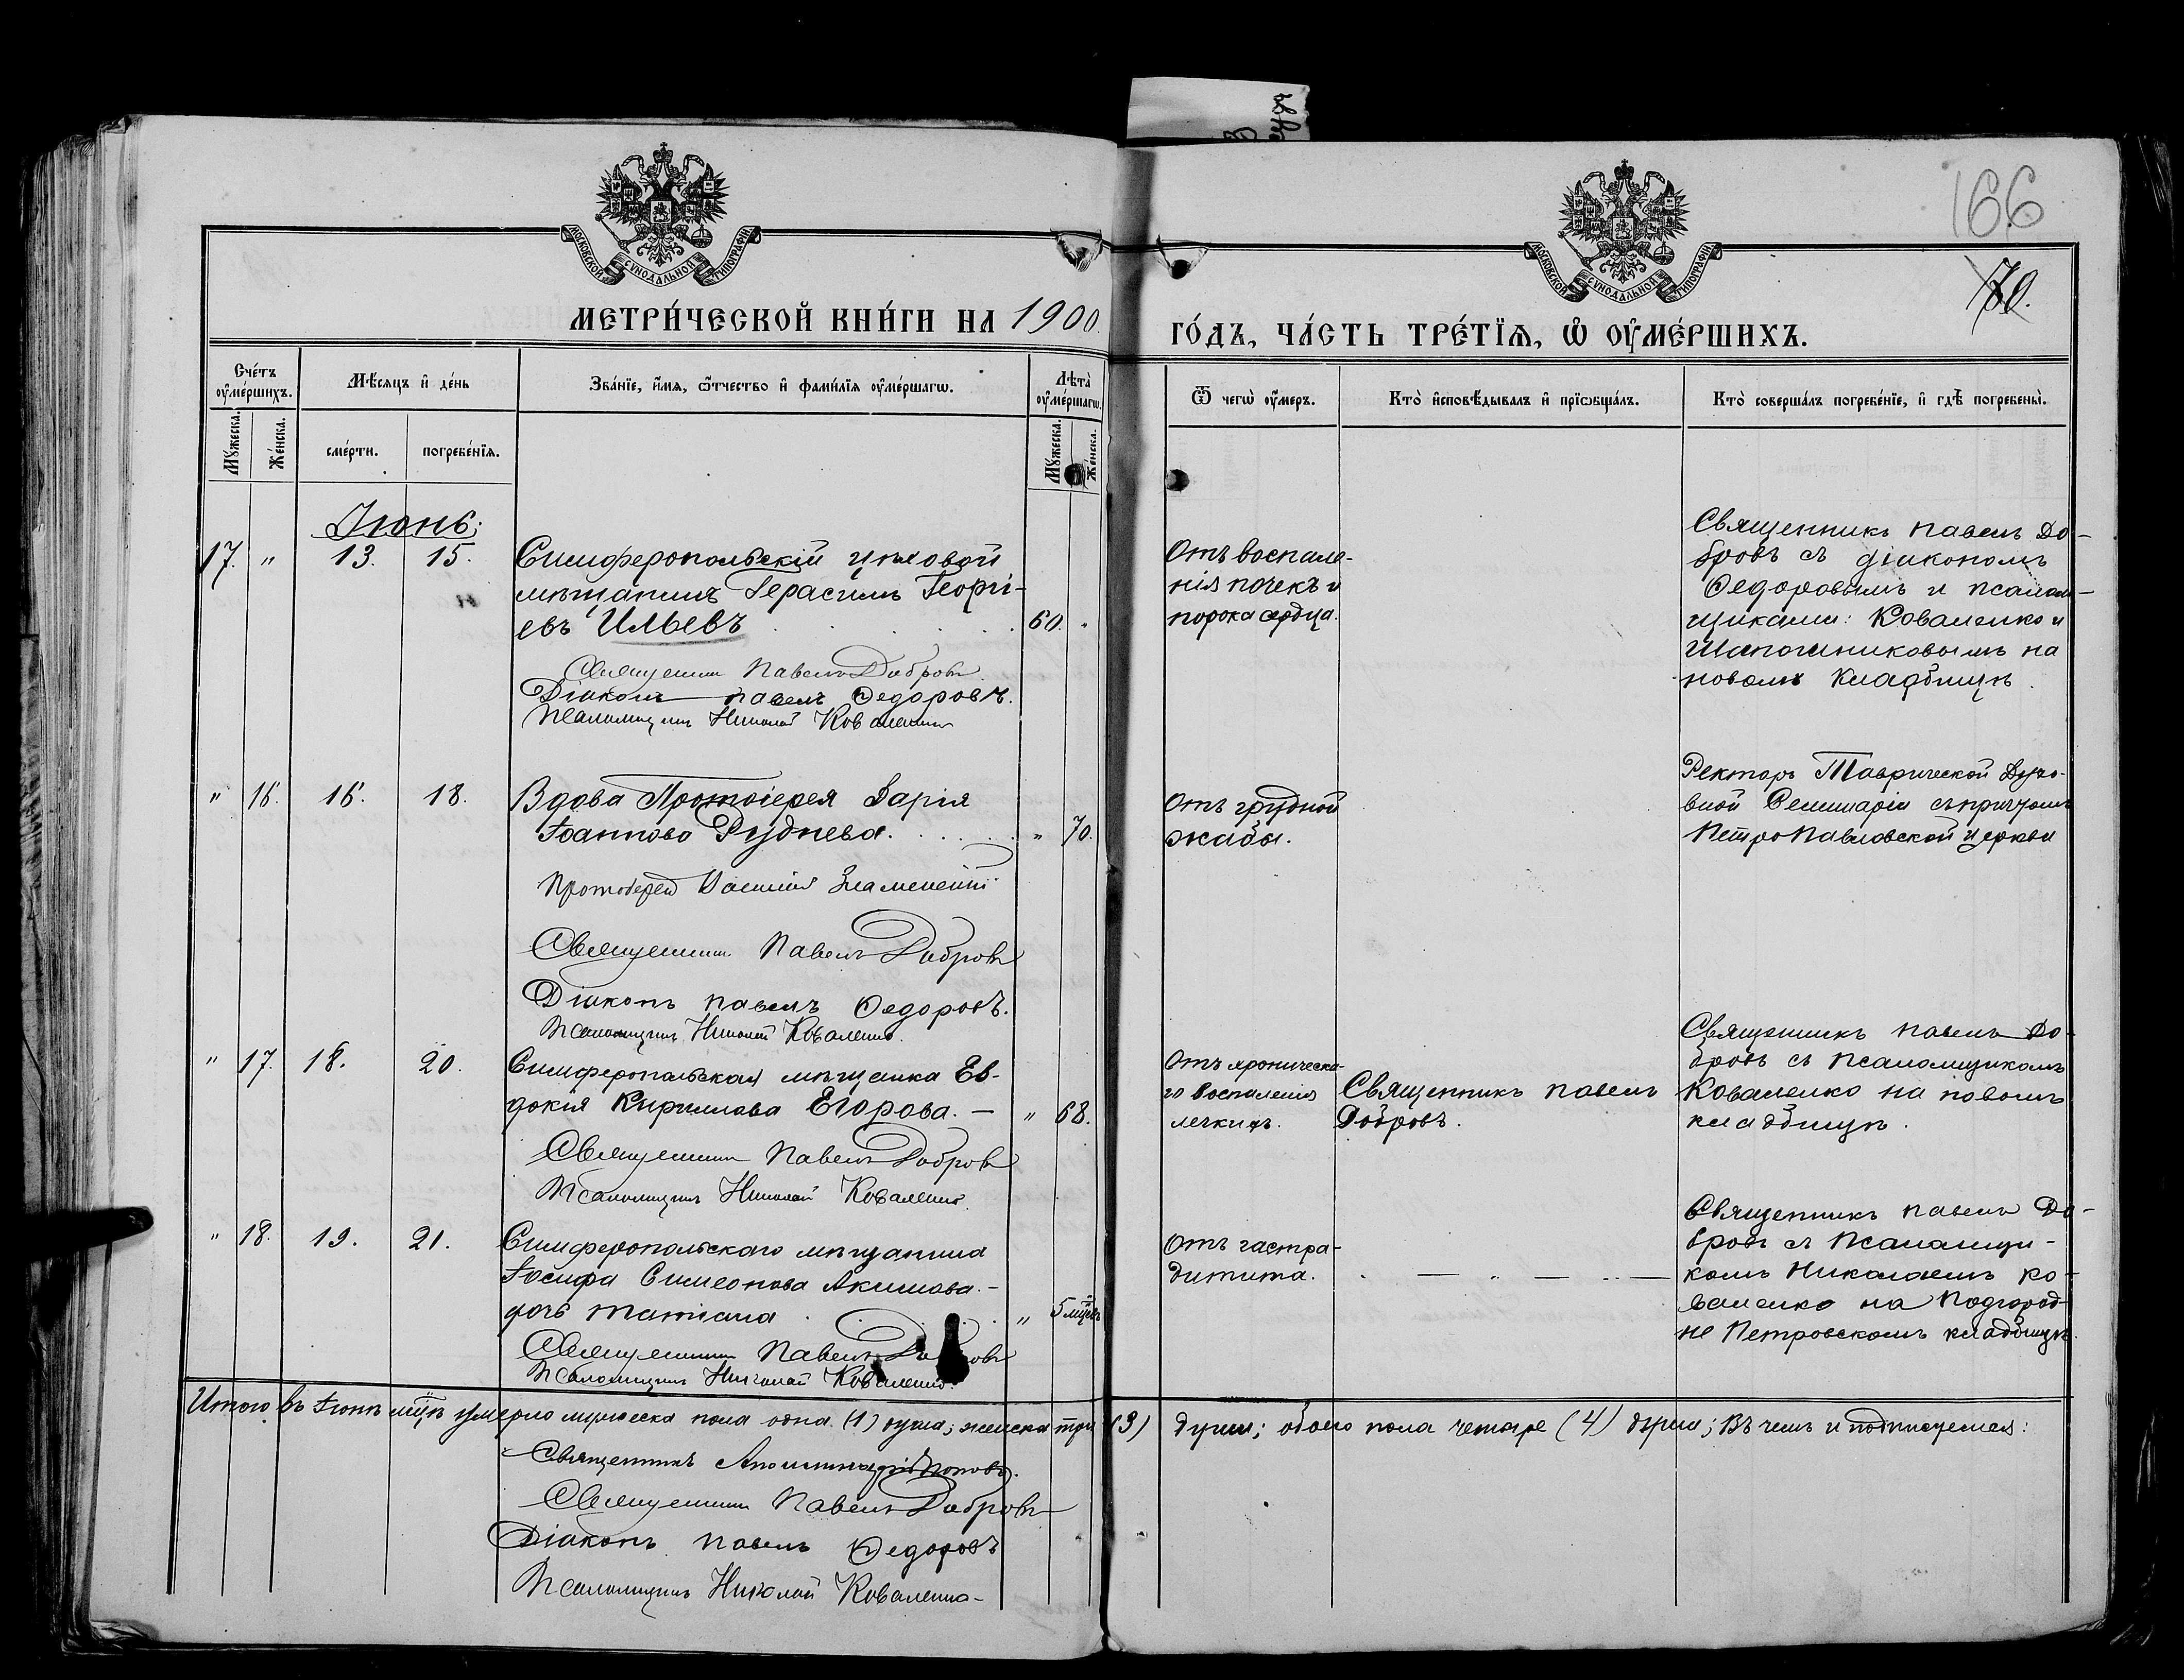 166
70.
МОСКОВСКОЙ СУНОДАЛЬНОЙ ТИПОГРАФІИ
МОСКОВСКОЙ СУНОДАЛЬНОЙ ТИПОГРАФІИ
МЕТРИ́ЧЕСКОЙ КНИ́ГИ НА 1900.
ГО́ДЪ, ЧА́СТЬ ТРЕ́ТЇѦ, Ѡ҆ ОУ҆МЕ́РШИХЪ.
Сче́тъ оу҆ме́ршихъ.
Мѣ́сяцъ и҆ де́нь
Зва́нїе, и҆́мѧ, ѻ҆́тчество и҆ фами́лїѧ оу҆ме́ршагѡ.
Лѣ́та оу҆ме́ршагѡ.
Ѿ чегѡ̀ оу҆́меръ.
Кто̀ и҆сповѣ́дывалъ и҆ прїѡбща́лъ.
Кто̀ соверша́лъ погребе́нїе, и҆ гдѣ̀ погребены̀.
Мꙋ́жеска.
Же́нска.
сме́рти.
погребе́нїѧ.
Мꙋ́жеска.
Же́нска.
Іюнь:
17. " 13. 15.
Симферопольскій цеховой
мѣщанинъ Герасимъ Георгі-
евъ Ильевъ . . . . . 60. "
Священникъ Павелъ Добровъ
Діаконъ Павелъ Федоровъ.
Псаломщикъ Николай Коваленко
Отъ воспале-
нія почекъ и
порока сердца.
Священникъ Павелъ До-
бровъ съ діакономъ
Федоровымъ и псалом-
щиками: Коваленко и
Шапошниковымъ на
новомъ кладбищѣ.
" 16. 16. 18.
Вдова Протоіерея Дарія
Іоаннова Руднева. . . . . " 70.
Протоіерей Василій Знаменскій
Священникъ Павелъ Добровъ
Діаконъ Павелъ Федоровъ.
Псаломщикъ Николай Коваленко.
Отъ грудной
жабы.
Ректоръ Таврической Духо-
вной Семинаріи съ причтомъ
Петро Павловской церкви
" 17. 18. 20.
Симферопольская мѣщанка Ев-
докія Кириллова Егорова. — " 68.
Священникъ Павелъ Добровъ
Псаломщикъ Николай Коваленко.
Отъ хроническа-
го воспаленія
легкихъ.
Священникъ Павелъ
Добровъ.
Священникъ Павелъ До-
бровъ съ псаломщикомъ
Коваленко на новомъ
кладбищѣ.
" 18. 19. 21.
Симферопольскаго мѣщанина
Іосифа Симеонова Акимова.-
дочь Татіана . . . . " 5 мцевъ
Священникъ Павелъ Добровъ
Псаломщикъ Николай Коваленко.
Отъ гастро-
дитита.
Священникъ Павелъ До-
бровъ съ псаломщи-
комъ Николаемъ Ко-
валенко на Подгород-
не Петровскомъ кладбищѣ.
Итого въ Іюнѣ мцѣ умерло мужеска пола одна (1) душа; женска три (3) души; обоего пола четыре (4) души; Въ чемъ и подписуемся:
Священникъ Аполлинарій Поповъ.
Священникъ Павелъ Добровъ
Діаконъ Павелъ Федоровъ
Псаломщикъ Николай Коваленко-